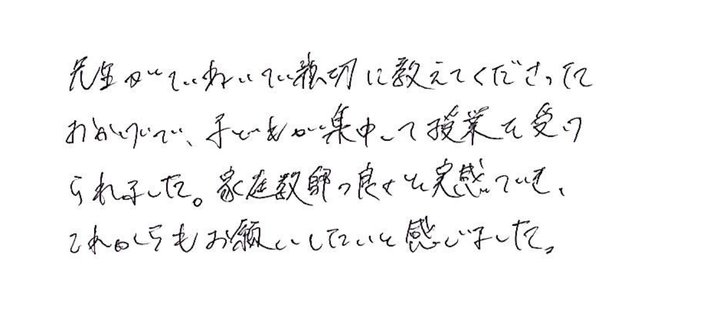 先生がていねいで親切に教えてくださった
おかげで、子どもが集中して授業を受け
られました。家庭教師の良さを実感でき、
これからもお願いしたいと感じました。